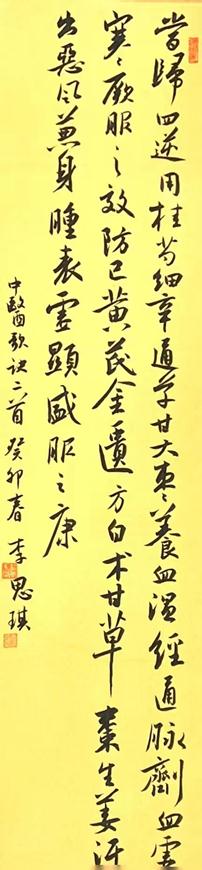 當歸四逆用桂芍細辛通草甘大棗養血溫經通脉劑血虛
寒寒厥服之效防己黄芪金匱方白术甘草棗生姜汗
出惡風兼身腫表虛顯盛服之康
中醫歌訣二首癸卯春李思琪